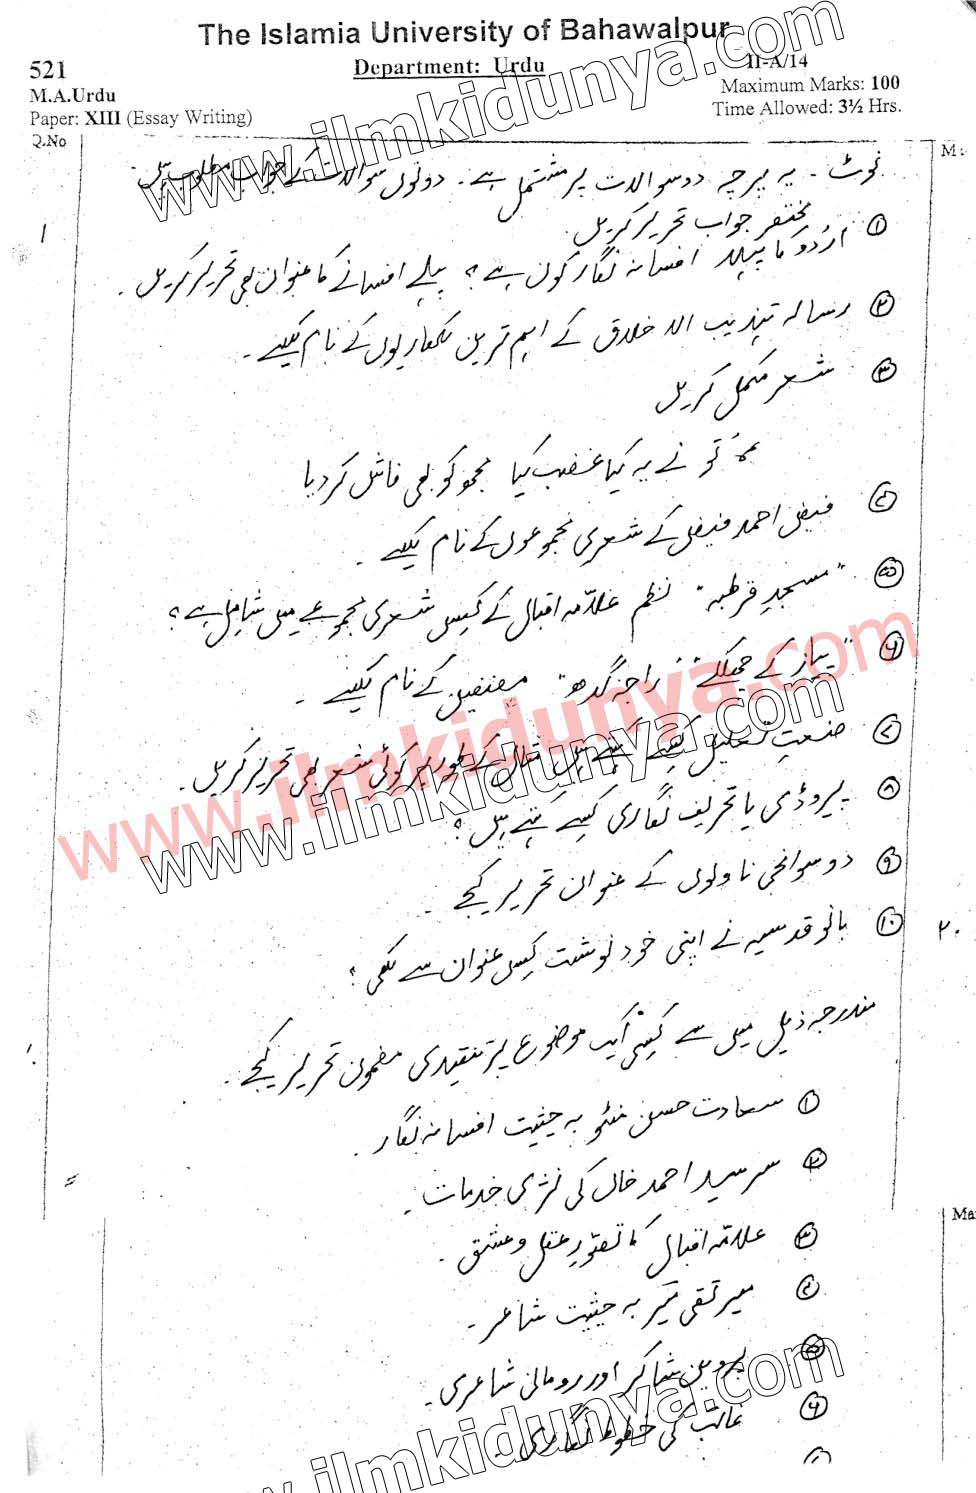 The Islamia University of Bahawalpur
521
Department: Urdu
II-A/14
M.A.Urdu
Maximum Marks: 100
Paper: XIII (Essay Writing)
Time Allowed: 3½ Hrs.
Q.No
M:
نوٹ۔ یہ پرچہ دو سوالات پر مشتمل ہے۔ دونوں سوالات کے جواب مطلوب ہیں۔
1
مختصر جواب تحریر کریں۔
① اردو کا پہلا افسانہ نگار کون ہے؟ پہلے افسانے کا عنوان بھی تحریر کریں۔
② رسالہ تہذیب الاخلاق کے اہم ترین لکھاریوں کے نام لکھیے۔
③ شعر مکمل کریں
؎ تُو نے یہ کیا غضب کیا مجھ کو بھی فاش کر دیا
④ فیض احمد فیض کے شعری مجموعوں کے نام لکھیے۔
⑤ "مسجدِ قرطبہ" نظم علامہ اقبال کے کس شعری مجموعے میں شامل ہے؟
⑥ "پیاز کے چھلکے" "راجہ گدھ" مصنفین کے نام لکھیے۔
⑦ صنعتِ تعلیل کسے کہتے ہیں مثال کے طور پر کوئی شعر بھی تحریر کریں۔
⑧ پیروڈی یا تحریف نگاری کسے کہتے ہیں؟
⑨ دو سوانحی ناولوں کے عنوان تحریر کیجے۔
⑩ بانو قدسیہ نے اپنی خودنوشت کس عنوان سے لکھی؟
۲۰
مندرجہ ذیل میں سے کسی ایک موضوع پر تنقیدی مضمون تحریر کیجے۔
① سعادت حسن منٹو بہ حیثیت افسانہ نگار۔
② سرسید احمد خاں کی نثری خدمات۔
Ma
③ علامہ اقبال کا تصورِ عقل و عشق۔
④ میر تقی میر بہ حیثیت شاعر۔
⑤ پروین شاکر اور رومانی شاعری۔
⑥ غالب کی خطوط نگاری۔
www.ilmkidunya.com
www.ilmkidunya.com
www.ilmkidunya.com
www.ilmkidunya.com